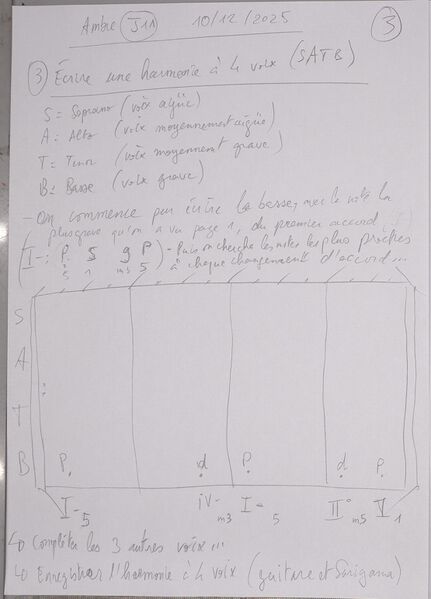 Ambre J11 10/12/2025 3
3 Écrire une harmonie à 4 voix (SATB)
S = Soprano (voix aigüe)
A = Alto (voix moyennement aigüe)
T = Tenor (voix moyennement grave)
B = Basse (voix grave)
- On commence par écrire la basse, avec la note la
plus grave qu'on a vu page 1, du premier accord
(I-: P. S g P) - Puis on cherche les notes les plus proches
5 1 m3 5 à chaque changement d'accord...
S
A
T
B P. d P. d P.
I-5 iv-m3 I-5 II°m5 V1
↳ Compléter les 3 autres voix...
↳ Enregistrer l'harmonie à 4 voix (guitare et Sargama)